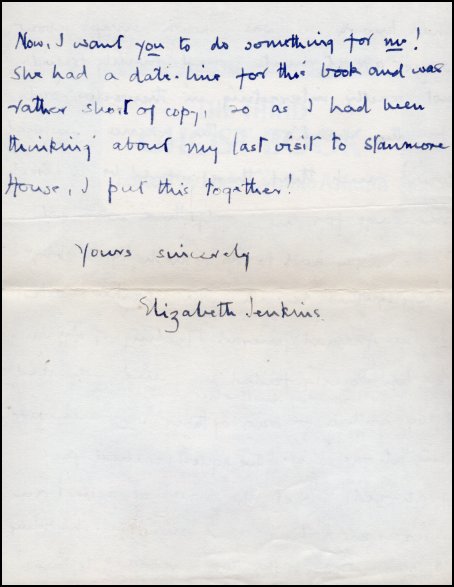 Now, I want you to do something for me!
She had a date-line for this book and was
rather short of copy, so as I had been
thinking about my last visit to Stanmore
House, I put this together!
Yours sincerely
Elizabeth Jenkins.